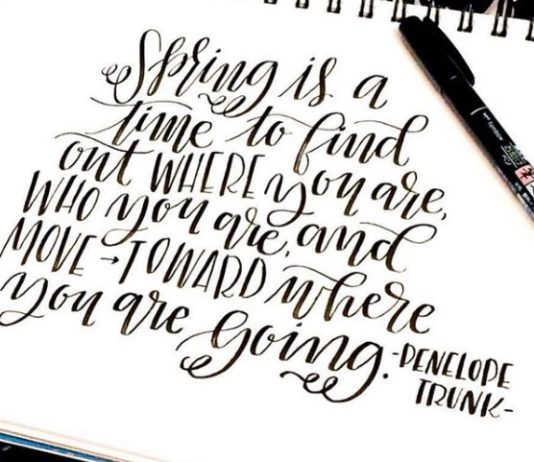 Spring is a
time to find
out WHERE you are,
WHO you are, and
MOVE → TOWARD where
you are going.
-PENELOPE
TRUNK-